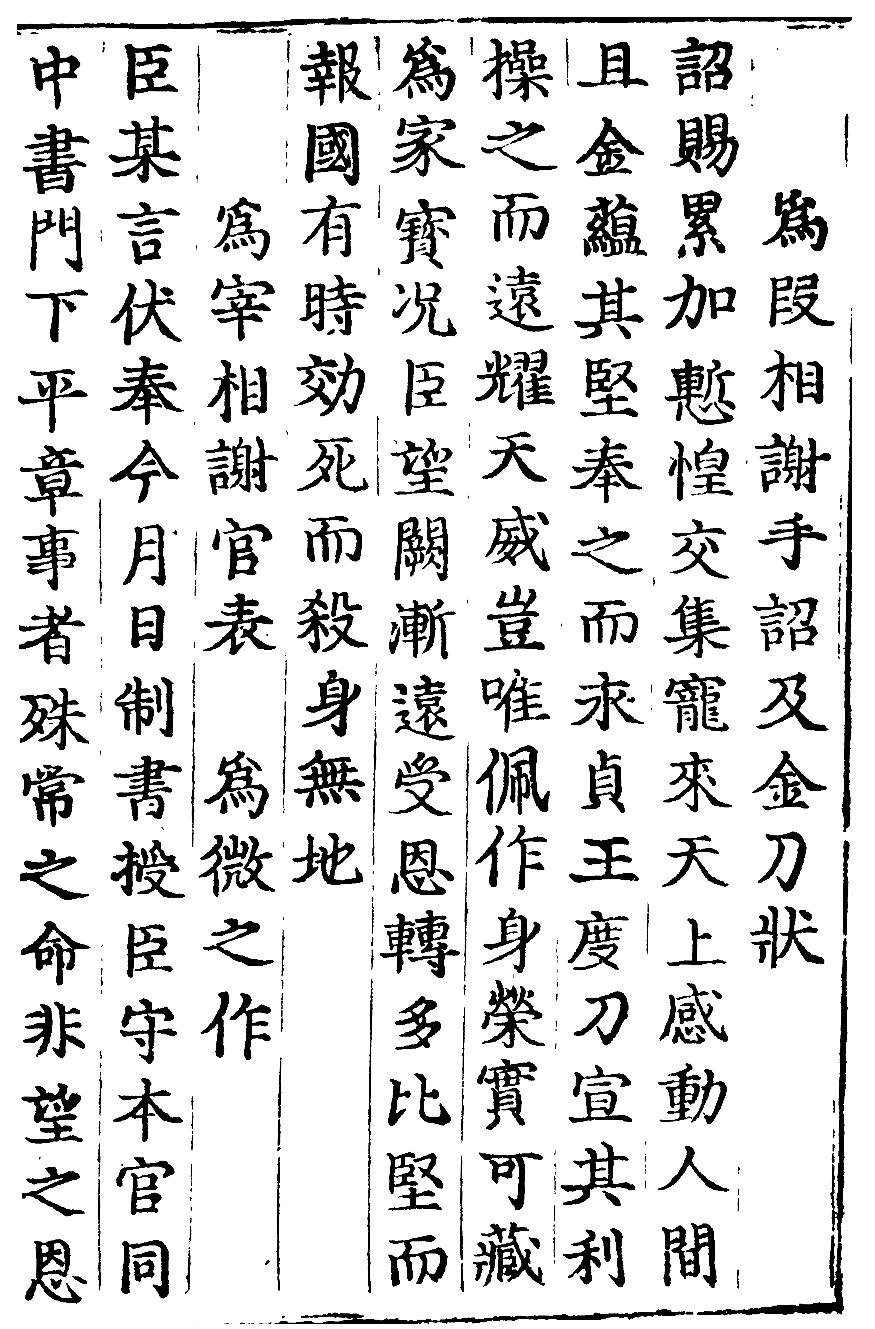 爲段相謝手詔及金刀狀
詔賜累加慙惶交集寵來天上感動人間
且金蘊其堅奉之而永貞王度刀宣其利
操之而遠耀天威豈唯佩作身榮實可藏
爲家寳况臣望闕漸遠受恩轉多比堅而
報國有時効死而殺身無地
爲宰相謝官表　爲微之作
臣某言伏奉今月日制書授臣守本官同
中書門下平章事者殊常之命非望之恩